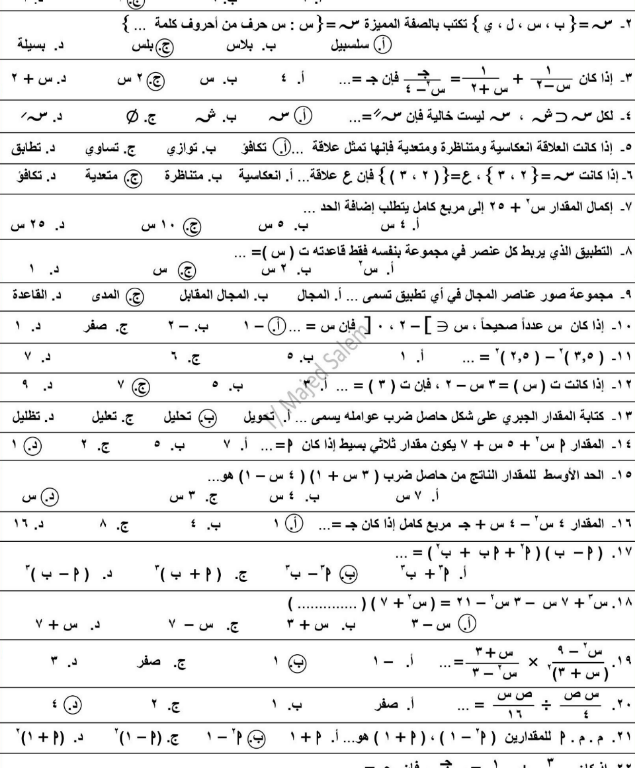 ٢- سـ = { ب ، س ، ل ، ي } تكتب بالصفة المميزة سـ = { س : س حرف من أحروف كلمة ... }
أ. سلسبيل ب. بلاس ج. بلس د. بسيلة
٣- إذا كان ١/(س-٢) + ١/(س+٢) = جـ/(س²-٤) فإن جـ =... أ. ٤ ب. س ج. ٢ س د. س + ٢
٤- لكل سـ ⊂ شـ ، سـ ليست خالية فإن سـ// =... أ. سـ ب. شـ ج. Ø د. سـ/
٥- إذا كانت العلاقة انعكاسية ومتناظرة ومتعدية فإنها تمثل علاقة ... أ. تكافؤ ب. توازي ج. تساوي د. تطابق
٦- إذا كانت سـ = { ٢ ، ٣ } ، ع = { ( ٢ ، ٣ ) } فإن ع علاقة... أ. انعكاسية ب. متناظرة ج. متعدية د. تكافؤ
٧- إكمال المقدار س² + ٢٥ إلى مربع كامل يتطلب إضافة الحد ...
أ. ٤ س ب. ٥ س ج. ١٠ س د. ٢٥ س
٨- التطبيق الذي يربط كل عنصر في مجموعة بنفسه فقط قاعدته ت ( س ) = ...
أ. س² ب. ٢ س ج. س د. ١
٩- مجموعة صور عناصر المجال في أي تطبيق تسمى ... أ. المجال ب. المجال المقابل ج. المدى د. القاعدة
١٠- إذا كان س عدداً صحيحاً ، س ∈ ] -٢ ، ٠ [ فإن س = ... أ. -١ ب. -٢ ج. صفر د. ١
١١- ( ٣,٥ )² - ( ٢,٥ )² = ... أ. ١ ب. ٥ ج. ٦ د. ٧
١٢- إذا كانت ت ( س ) = ٣ س - ٢ ، فإن ت ( ٣ ) = ... أ. ٣ ب. ٥ ج. ٧ د. ٩
١٣- كتابة المقدار الجبري على شكل حاصل ضرب عوامله يسمى ... أ. تحويل ب. تحليل ج. تعليل د. تظليل
١٤- المقدار أ س² + ٥ س + ٧ يكون مقدار ثلاثي بسيط إذا كان أ =... أ. ٧ ب. ٥ ج. ٢ د. ١
١٥- الحد الأوسط للمقدار الناتج من حاصل ضرب ( ٣ س + ١ ) ( ٤ س - ١ ) هو...
أ. ٧ س ب. ٤ س ج. ٣ س د. س
١٦- المقدار ٤ س² - ٤ س + جـ مربع كامل إذا كان جـ =... أ. ١ ب. ٤ ج. ٨ د. ١٦
١٧. ( أ - ب ) ( أ² + أ ب + ب² ) = ...
أ. أ³ + ب³ ب. أ³ - ب³ ج. ( أ + ب )³ د. ( أ - ب )³
١٨. س³ + ٧ س - ٣ س² - ٢١ = ( س² + ٧ ) ( .............. )
أ. س - ٣ ب. س + ٣ ج. س - ٧ د. س + ٧
١٩. (س² - ٩)/(س + ٣)² × (س + ٣)/(س - ٣) =... أ. -١ ب. ١ ج. صفر د. ٣
٢٠. س ص/٤ ÷ س ص/١٦ = ... أ. صفر ب. ١ ج. ٢ د. ٤
٢١. م . م . أ للمقدارين ( أ² - ١ ) ، ( أ + ١ ) هو... أ. أ + ١ ب. أ² - ١ ج. ( أ - ١ )² د. ( أ + ١ )²
T/ Majed Salem